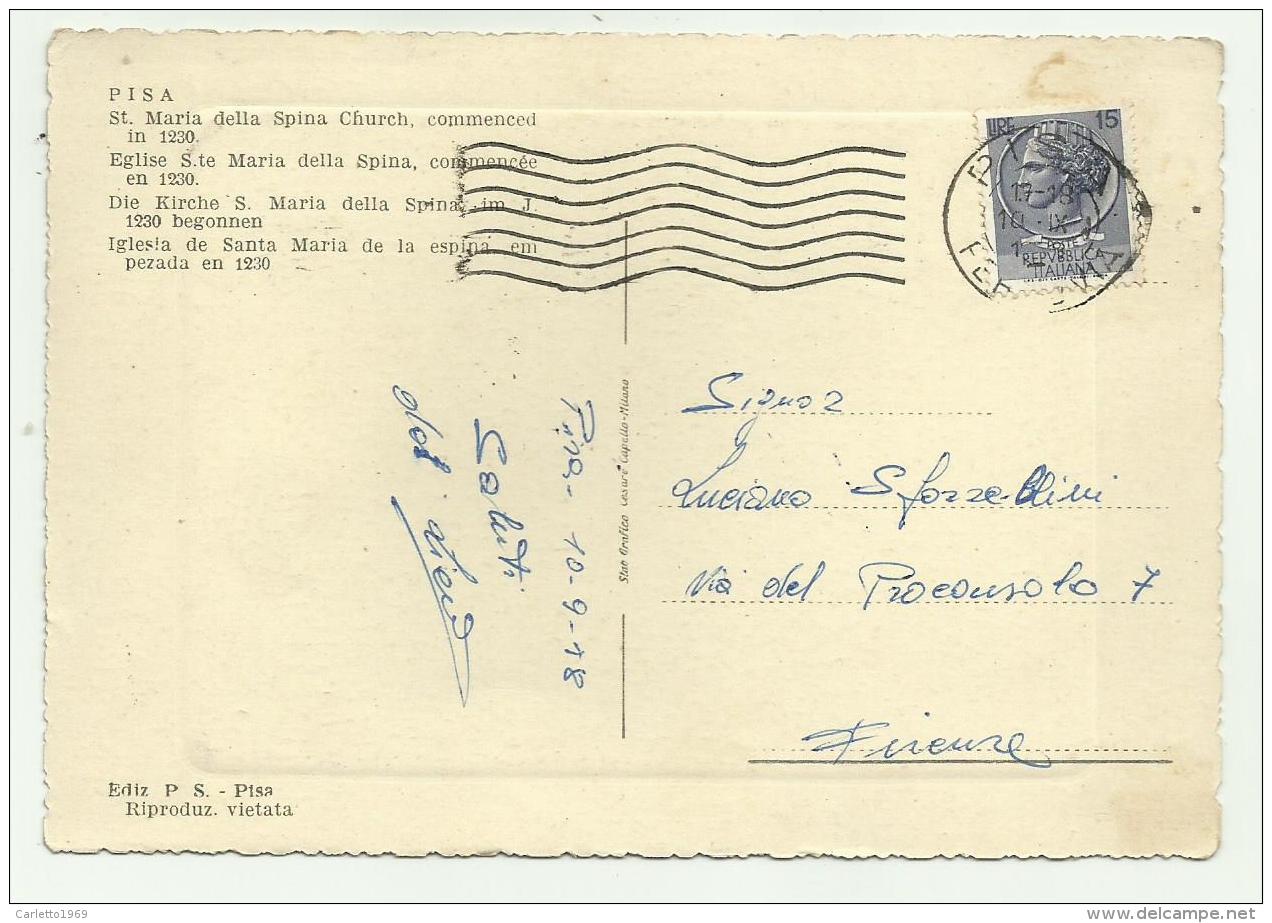 PISA
St. Maria della Spina Church, commenced
in 1230.
Eglise S.te Maria della Spina, commencée
en 1230.
Die Kirche S. Maria della Spina, im J.
1230 begonnen
Iglesia de Santa Maria de la espina em
pezada en 1230
LIRE 15
PISA
17-18
10 IX
POSTE
REPVBBLICA
ITALIANA
Pisa - 10-9-58
Saluti
Stab Grafico Cesare Capello-Milano
Signor
Luciano Sforzellini
Via del Proconsolo 7
Firenze
Ediz P S. - Pisa
Riproduz. vietata
Carletto1969
delcampe.net